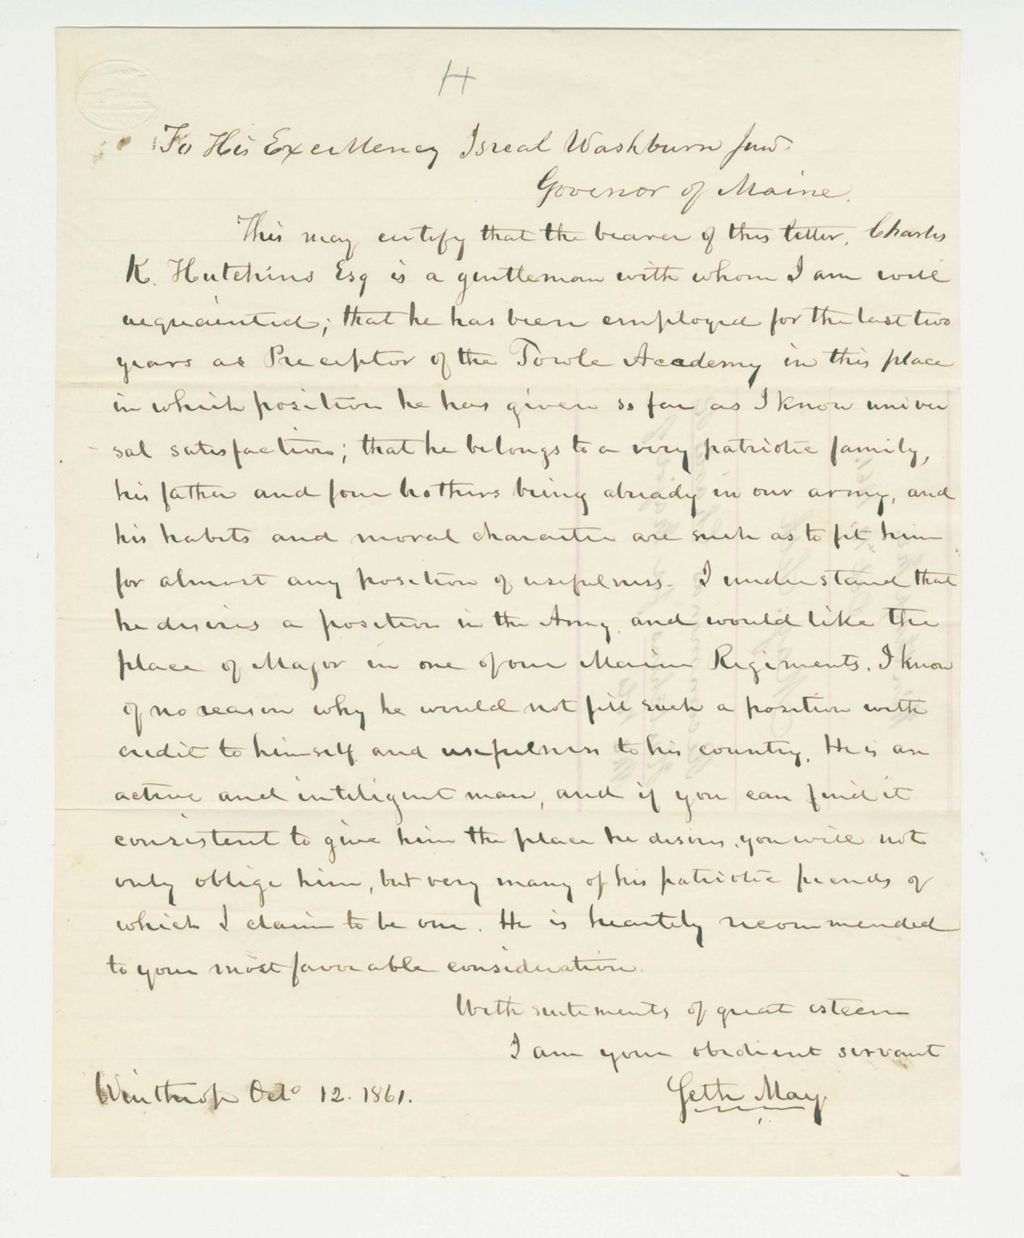 H
To His Excellency Isreal Washburn Junr.
Govenor of Maine.
This may certify that the bearer of this letter, Charles
K. Hutchins Esq is a gentleman with whom I am well
acquainted; that he has been employed for the last two
years as Preceptor of the Towle Academy in this place
in which position he has given so far as I know univer
sal satisfaction; that he belongs to a very patriotic family,
his father and four brothers being already in our army, and
his habits and moral character are such as to fit him
for almost any position of usefulness. I understand that
he desires a position in the Army and would like the
place of Major in one of our Maine Regiments. I know
of no reason why he would not fill such a position with
credit to himself and usefulness to his country. He is an
active and inteligent man, and if you can find it
consistent to give him the place he desires, you will not
only oblige him, but very many of his patriotic friends of
which I claim to be one. He is heartily recommended
to your most favorable consideration.
With sentements of great esteem
I am your obedient servant
Winthrop Oct. 12. 1861.
Seth May.